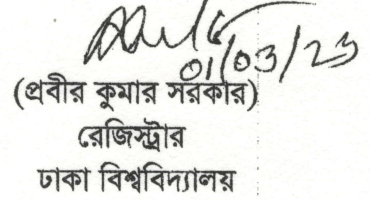 01/03/23
(প্রবীর কুমার সরকার)
রেজিস্ট্রার
ঢাকা বিশ্ববিদ্যালয়